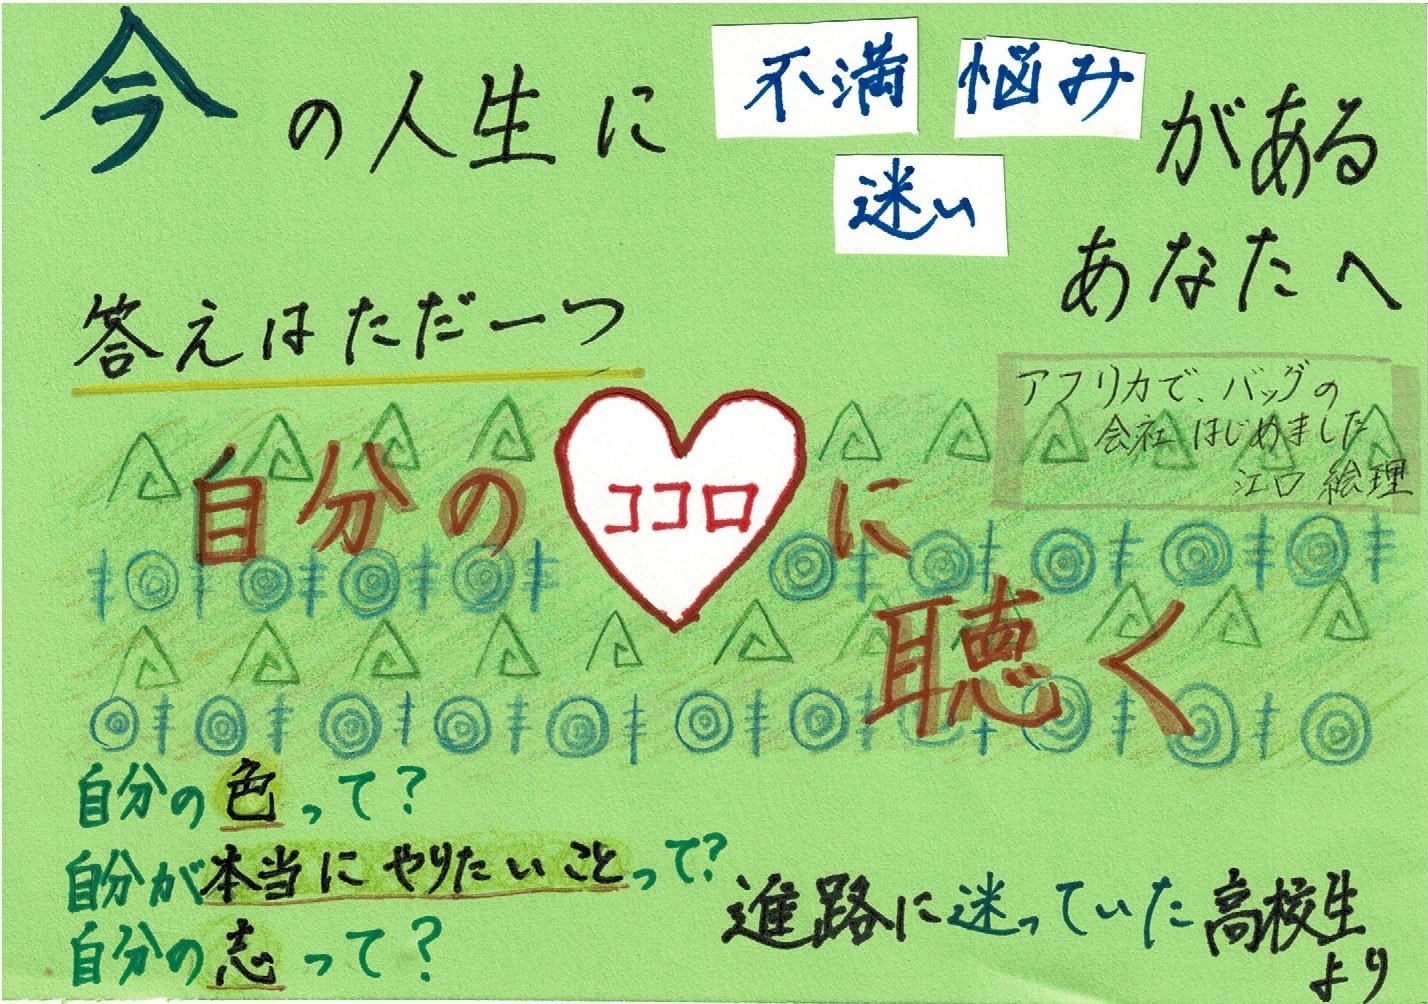 今の人生に 不満 悩み 迷い がある
あなたへ
答えはただ一つ
アフリカで、バッグの
会社はじめました
江口 絵理
自分のココロに
聴く
自分の色って？
自分が本当にやりたいことって？
自分の志って？
進路に迷っていた高校生
より